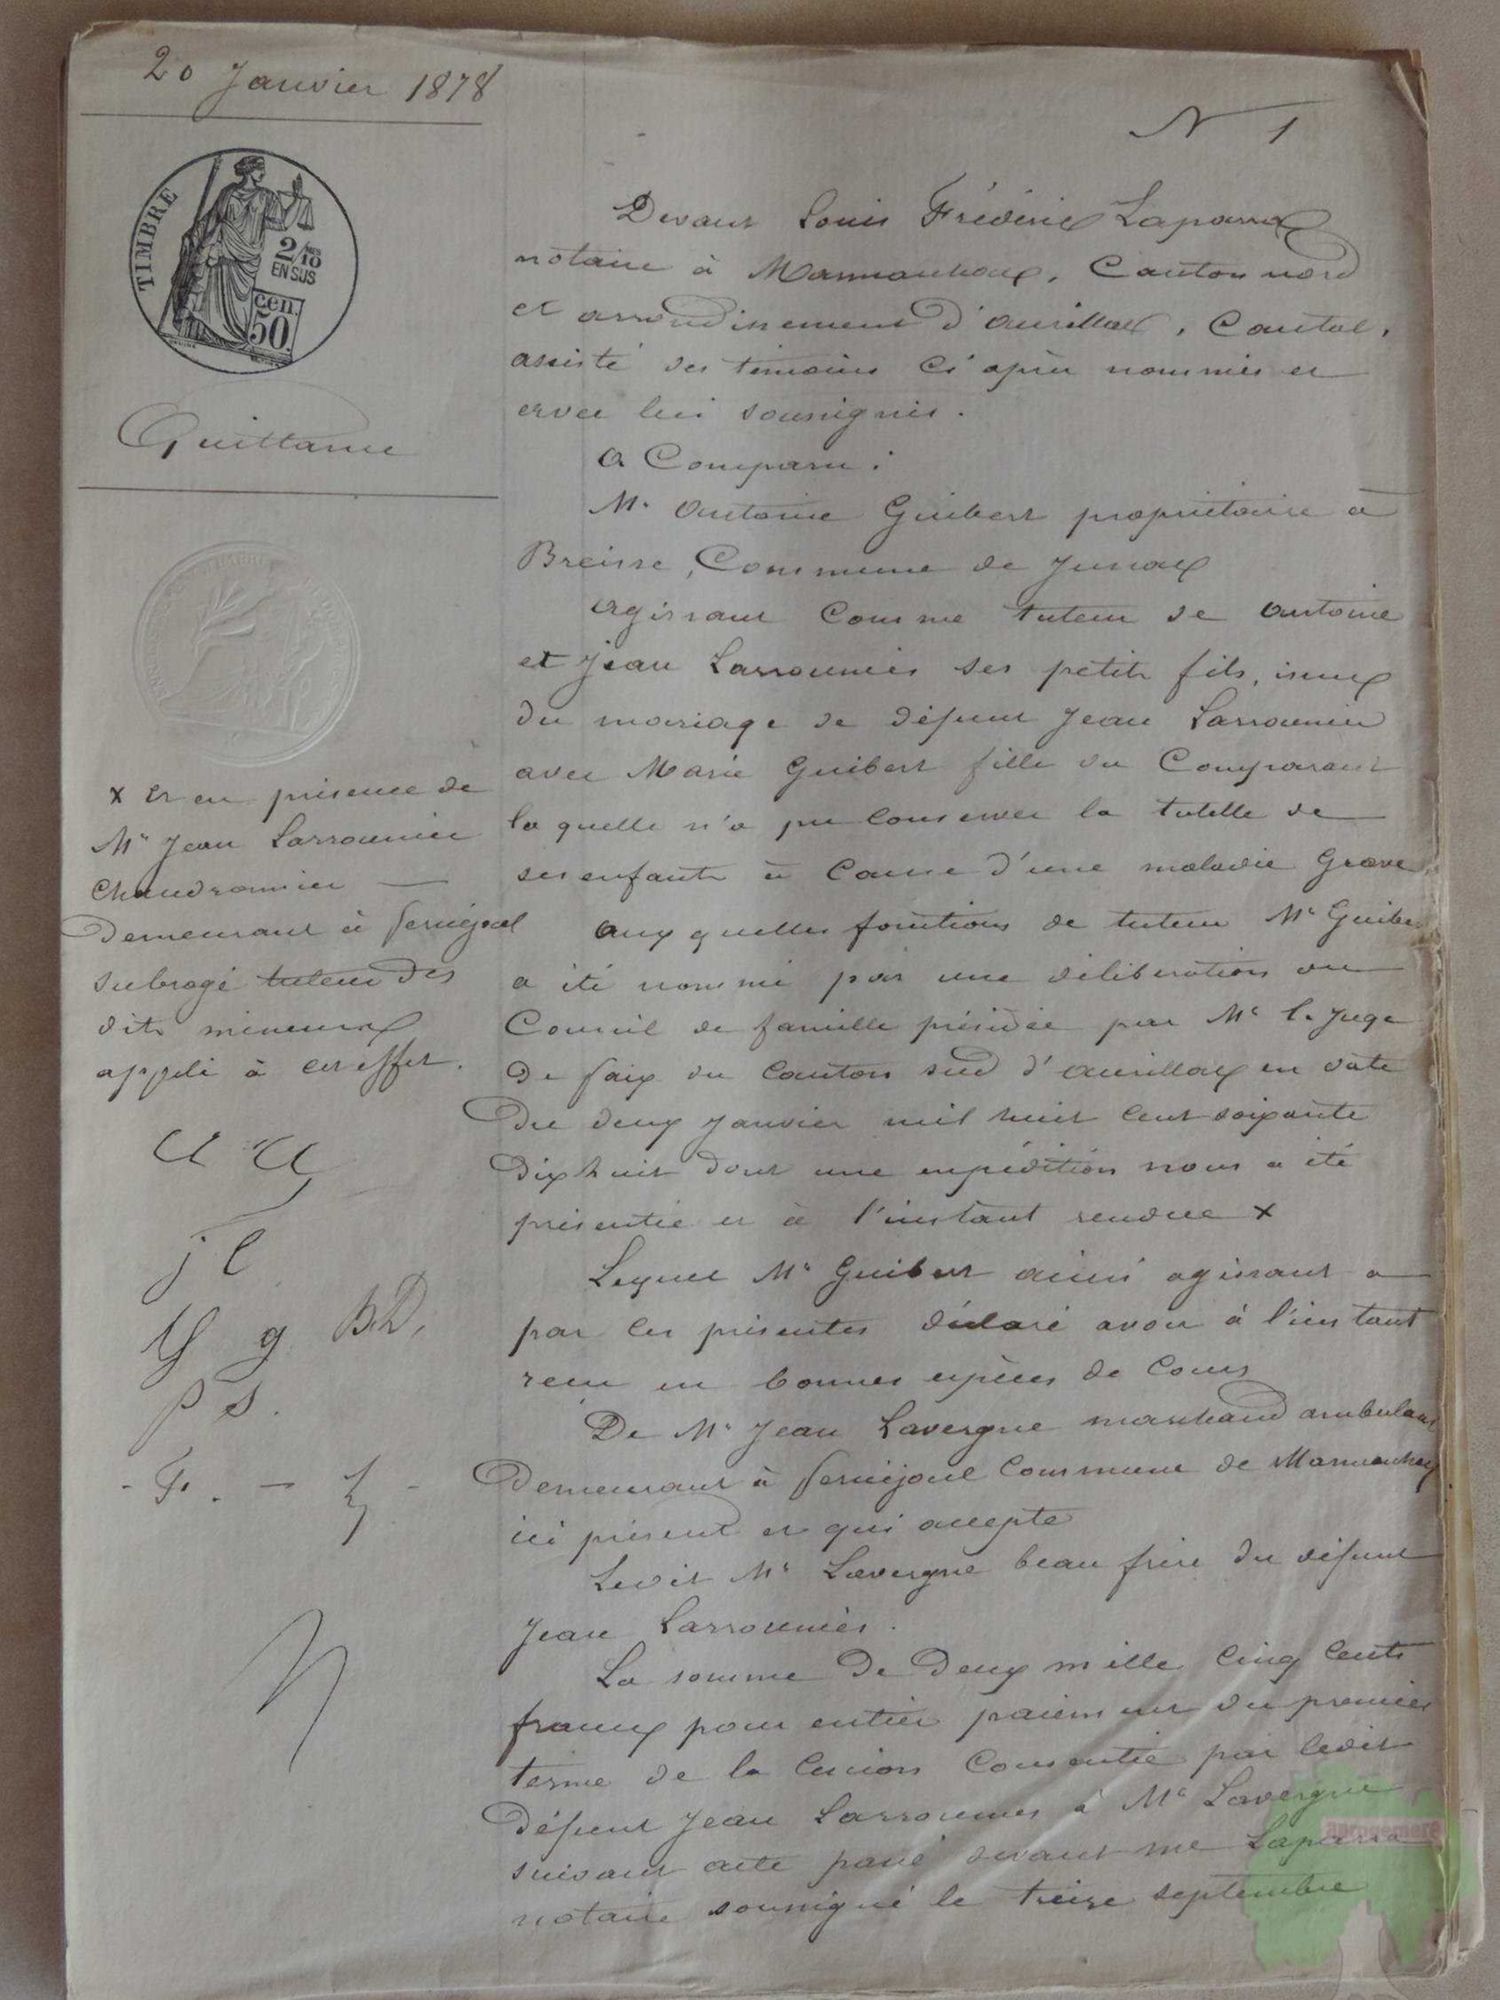 20 Janvier 1878
TIMBRE
2/10
EN SUS
cen.
50
Quittance
N 1
Devant Louis Frédéric Laparra
notaire à Marmanhac, Canton nord
et arrondissement d'aurillac, Cantal,
assisté des témoins ci après nommés et
avec lui soussignés.
a Comparu :
Mr antoine Guibert propriétaire à
Breisse, Commune de Jussac
agissant comme tuteur de antoine
et Jean Larroumies ses petits fils, issus
du mariage de défunt Jean Larroumies
avec Marie Guibert fille du Comparant
la quelle n'a pu conserver la tutelle de
ses enfants à Cause d'une maladie Grave
aux quelles fonctions de tuteur Mr Guibert
a été nommé par une délibération du
Conseil de famille présidée par Mr le Juge
de paix du Canton sud d'aurillac en date
du deux Janvier mil huit cent soixante
dix huit dont une expédition nous a été
présentée et à l'instant rendue x
Lequel Mr Guibert ainsi agissant a
par ces présentes déclaré avoir à l'instant
reçu en bonnes espèces de Cours
De Mr Jean Lavergne marchand ambulant
demeurant à Serniejoul Commune de Marmanhac
ici présent et qui accepte
Ledit Mr Lavergne beau frère du défunt
Jean Larroumies.
La somme de deux mille cinq cents
francs pour entier paiement du premier
terme de la Cession Consentie par ledit
défunt Jean Larroumies à Mr Lavergne
suivant acte passé devant me Laparra
notaire soussigné le treize septembre
x et en présence de
Mr Jean Larroumies
Chaudronnier
demeurant à Serniejoul
subrogé tuteur des
dits mineurs
appelé à cet effet.
J L
g B.D.
P S.
Aprogemere